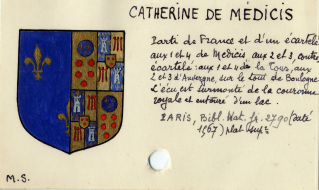 CATHERINE DE MÉDICIS
Parti de France et d'un écartelé
aux 1 et 4 de Médicis aux 2 et 3, contre
écartelé : aux 1 et 4 de la Tour, aux
2 et 3 d'Auvergne, sur le tout de Boulogne
L'écu est surmonté de la couronne
royale et entouré d'un lac.
PARIS, Bibl. Nat. fr. 2790 (daté
1567)
M.S.